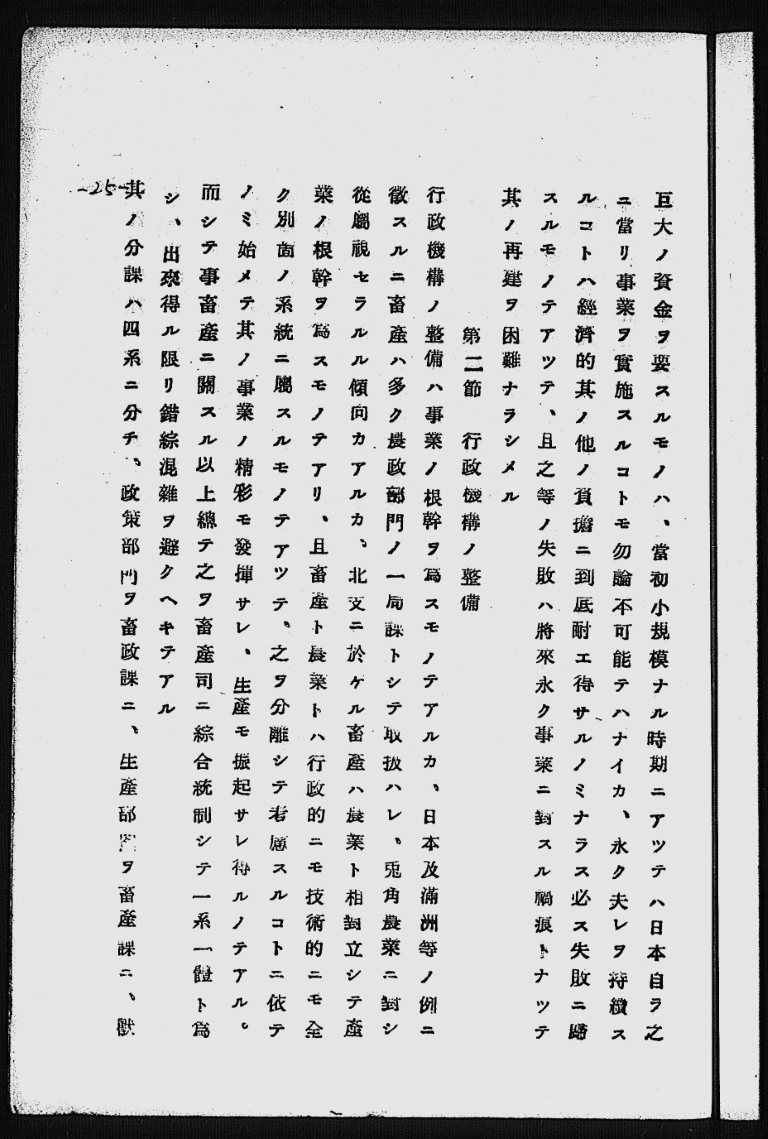 巨大ノ資金ヲ要スルモノハ、當初小規模ナル時期ニアツテハ日本自ラ之
ニ當リ事業ヲ實施スルコトモ勿論不可能テハナイカ、永ク夫レヲ持續ス
ルコトハ經濟的其ノ他ノ負擔ニ到底耐エ得サルノミナラス必ス失敗ニ歸
スルモノテアツテ、且之等ノ失敗ハ將來永ク事業ニ對スル禍痕トナツテ
其ノ再建ヲ困難ナラシメル
第二節 行政機構ノ整備
行政機構ノ整備ハ事業ノ根幹ヲ爲スモノテアルカ、日本及滿洲等ノ例ニ
徵スルニ畜產ハ多ク農政部門ノ一局課トシテ取扱ハレ、兎角農業ニ對シ
從屬視セラルル傾向カアルカ、北支ニ於ケル畜產ハ農業ト相對立シテ產
業ノ根幹ヲ爲スモノテアリ、且畜產ト農業トハ行政的ニモ技術的ニモ全
ク別箇ノ系統ニ屬スルモノテアツテ、之ヲ分離シテ考慮スルコトニ依テ
ノミ始メテ其ノ事業ノ精彩モ發揮サレ、生產モ振起サレ得ルノテアル。
而シテ事畜產ニ關スル以上總テ之ヲ畜產司ニ綜合統制シテ一系一體ト爲
シ、出來得ル限リ錯綜混雜ヲ避クヘキテアル
其ノ分課ハ四系ニ分チ、政策部門ヲ畜政課ニ、生產部門ヲ畜產課ニ、獸
-25-